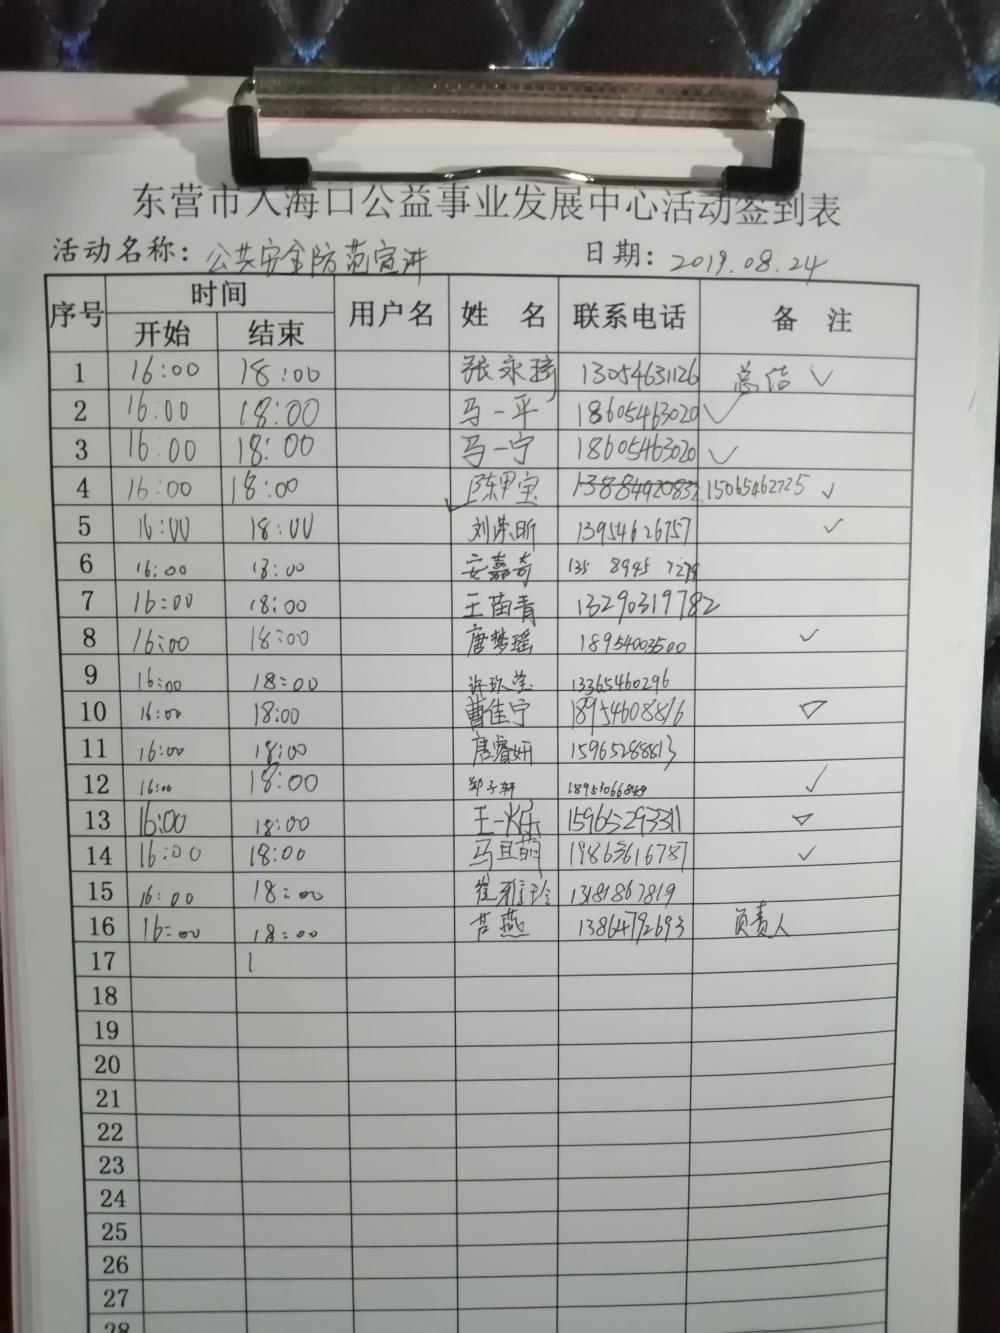 东营市入海口公益事业发展中心活动签到表
活动名称: 公共安全防范宣讲 日期: 2019.08.24
序号 时间 用户名 姓 名 联系电话 备 注
开始 结束
1 16:00 18:00 张永琦 13054631126 总结 ✓
2 16:00 18:00 马一平 18605463020 ✓
3 16:00 18:00 马一宁 18605463020 ✓
4 16:00 18:00 ✓ 陈甲宝 15065462725 ✓
5 16:00 18:00 刘荣昕 13954626757 ✓
6 16:00 18:00 安嘉奇 135 8945 7279
7 16:00 18:00 王苗青 13290319782
8 16:00 18:00 唐梦瑶 18954003500 ✓
9 16:00 18:00 许玖莹 13365460296
10 16:00 18:00 曹佳宁 18954608816
11 16:00 18:00 唐睿妍 15965288813
12 16:00 18:00 郑子轩 ✓
13 16:00 18:00 王一烁 15965293311
14 16:00 18:00 马旦萌 19863616787 ✓
15 16:00 18:00 崔雅玲 13181867819
16 16:00 18:00 苫燕 13864792693 负责人
17
18
19
20
21
22
23
24
25
26
27
28